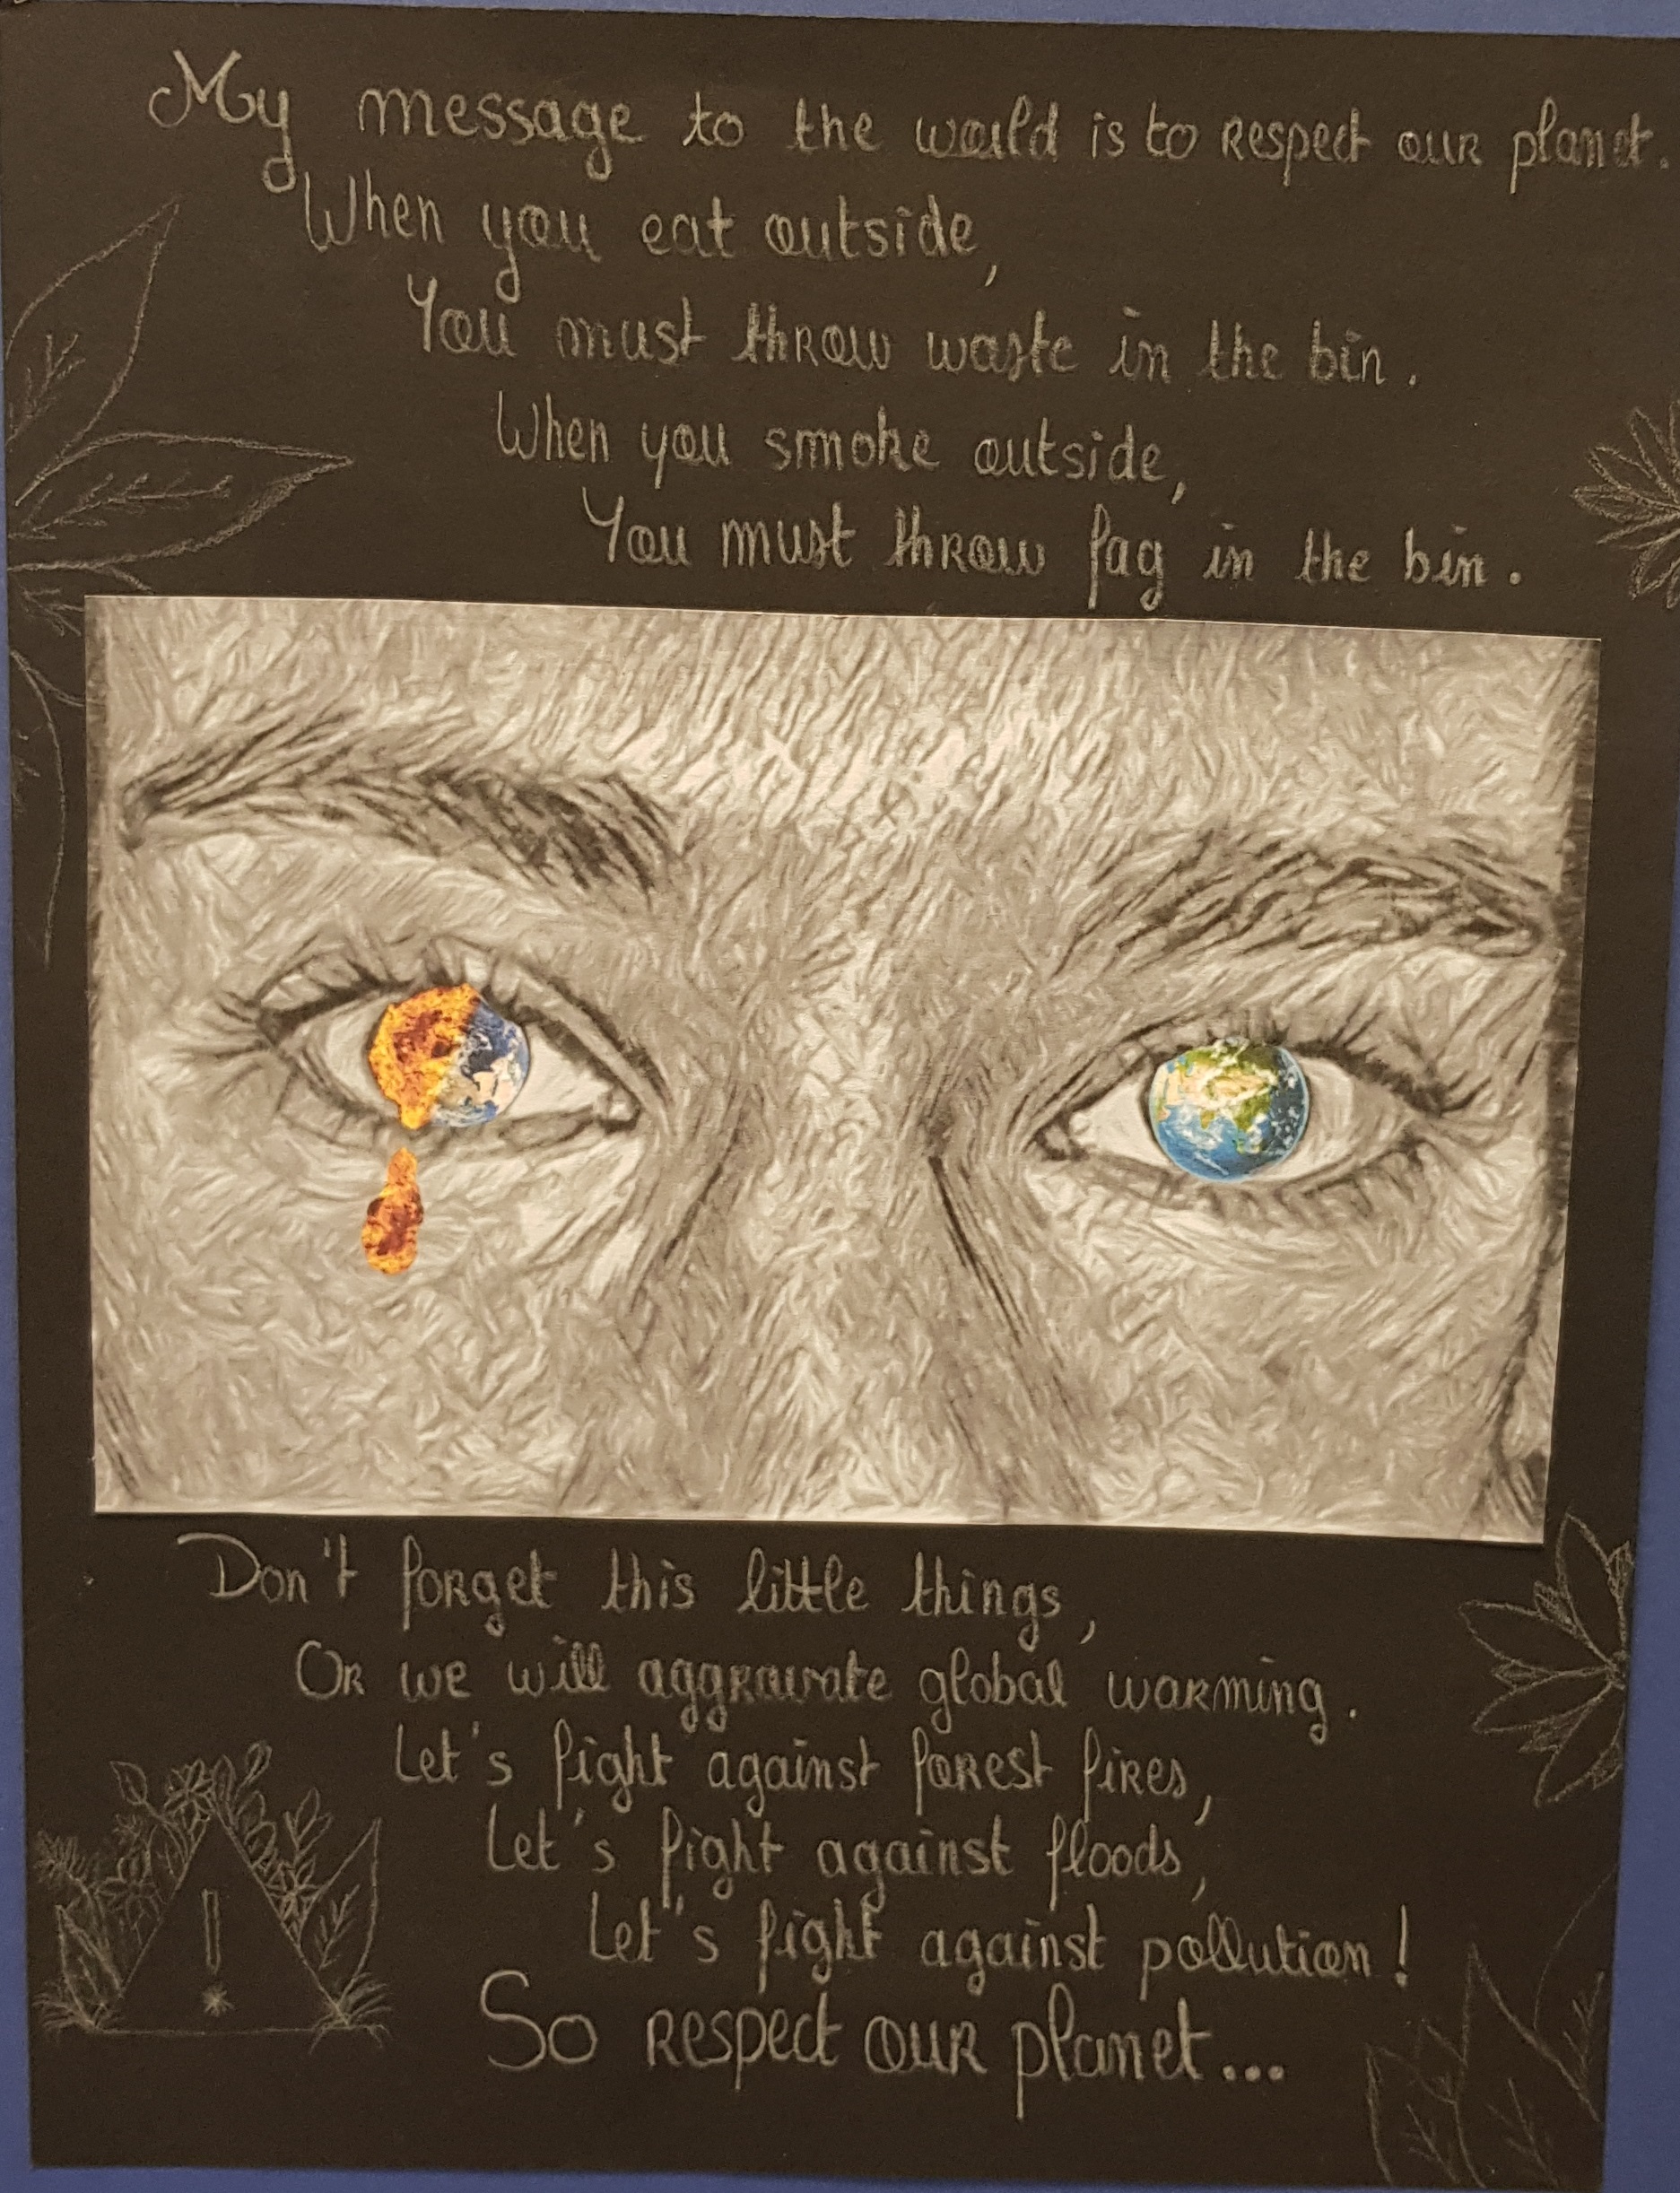 My message to the world is to respect our planet.
When you eat outside,
You must throw waste in the bin.
When you smoke outside,
You must throw fag in the bin.
Don't forget this little things,
Or we will aggravate global warming.
Let's fight against forest fires,
Let's fight against floods,
Let's fight against pollution!
So respect our planet...